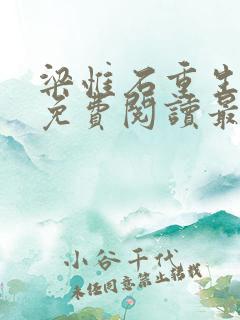 梁惟石重生
免費閱讀最
小谷千代
未经同意禁止转载